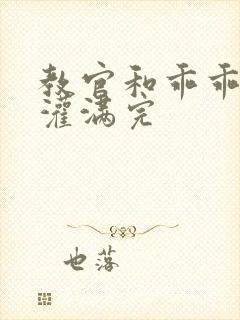 教官和乖乖
灌满完
也落